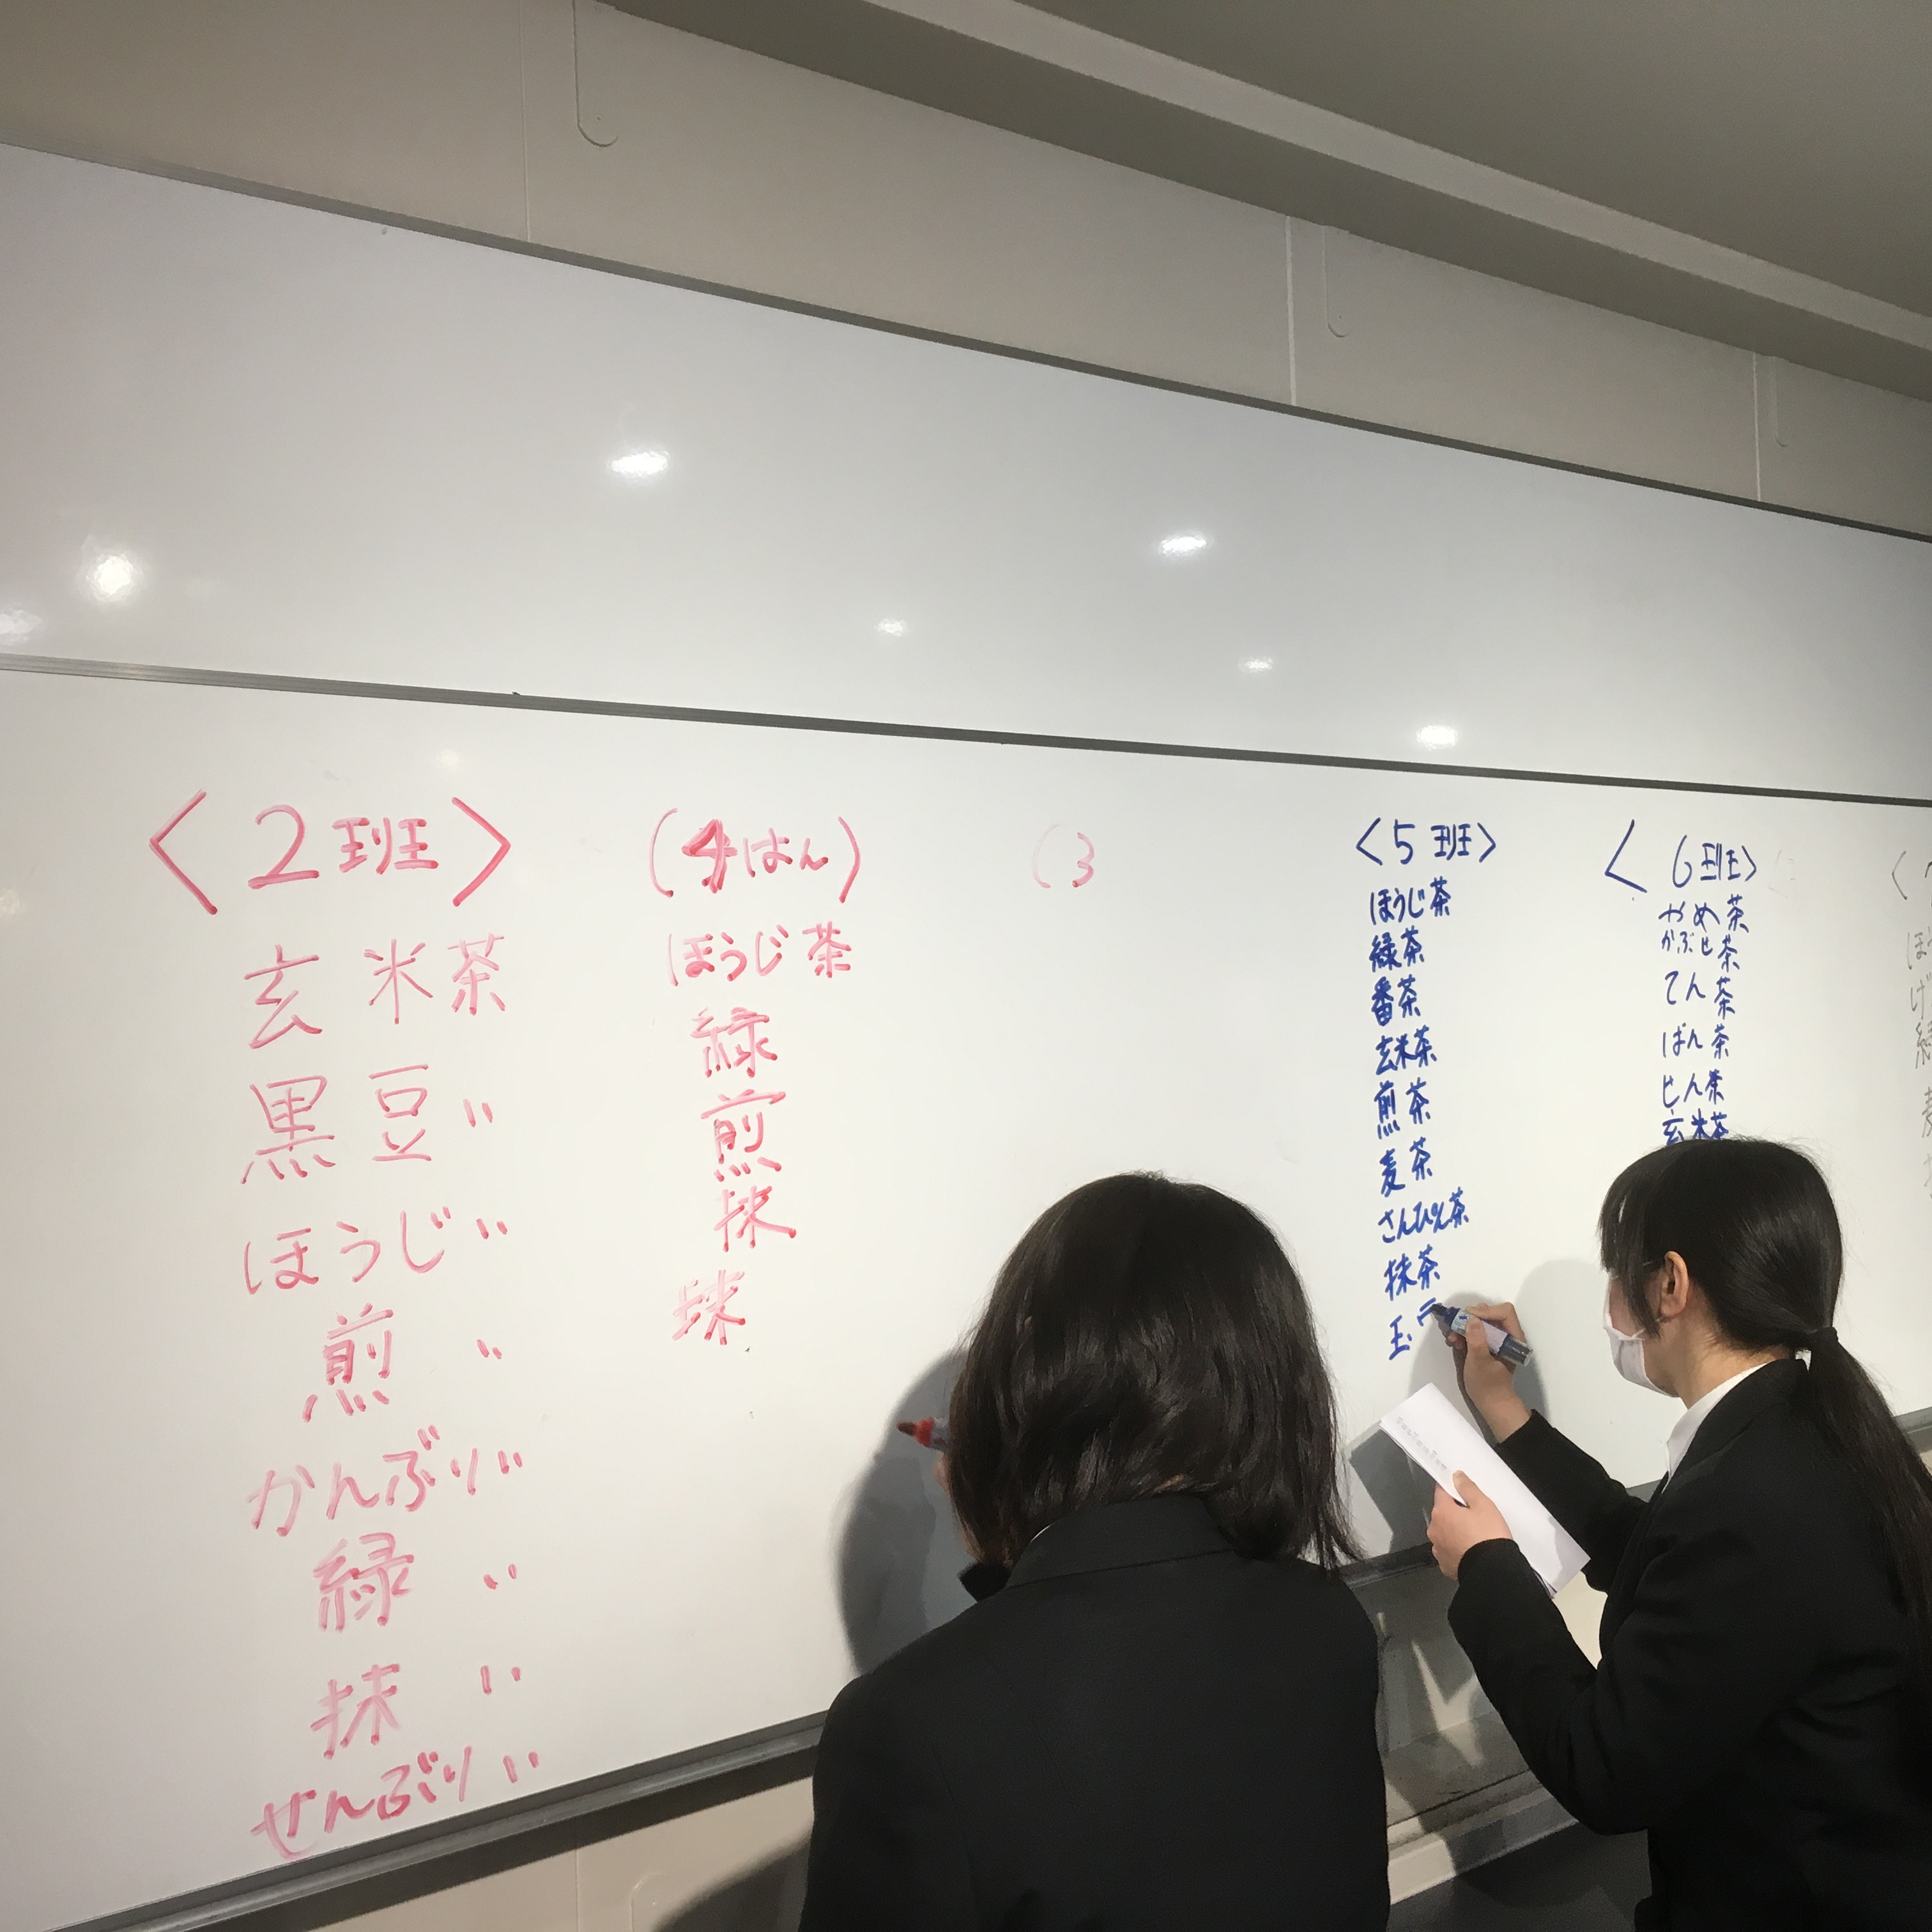 〈2班〉
玄米茶
黒豆〃
ほうじ〃
煎〃
かんぶり〃
緑〃
抹〃
せんぶり〃
(4はん)
ほうじ茶
緑
煎
抹
抹
(3
〈5班〉
ほうじ茶
緑茶
番茶
玄米茶
煎茶
麦茶
さんぴん茶
抹茶
玉
〈6班〉
やめ茶
かぶせ茶
てん茶
ばん茶
せん茶
玄米茶